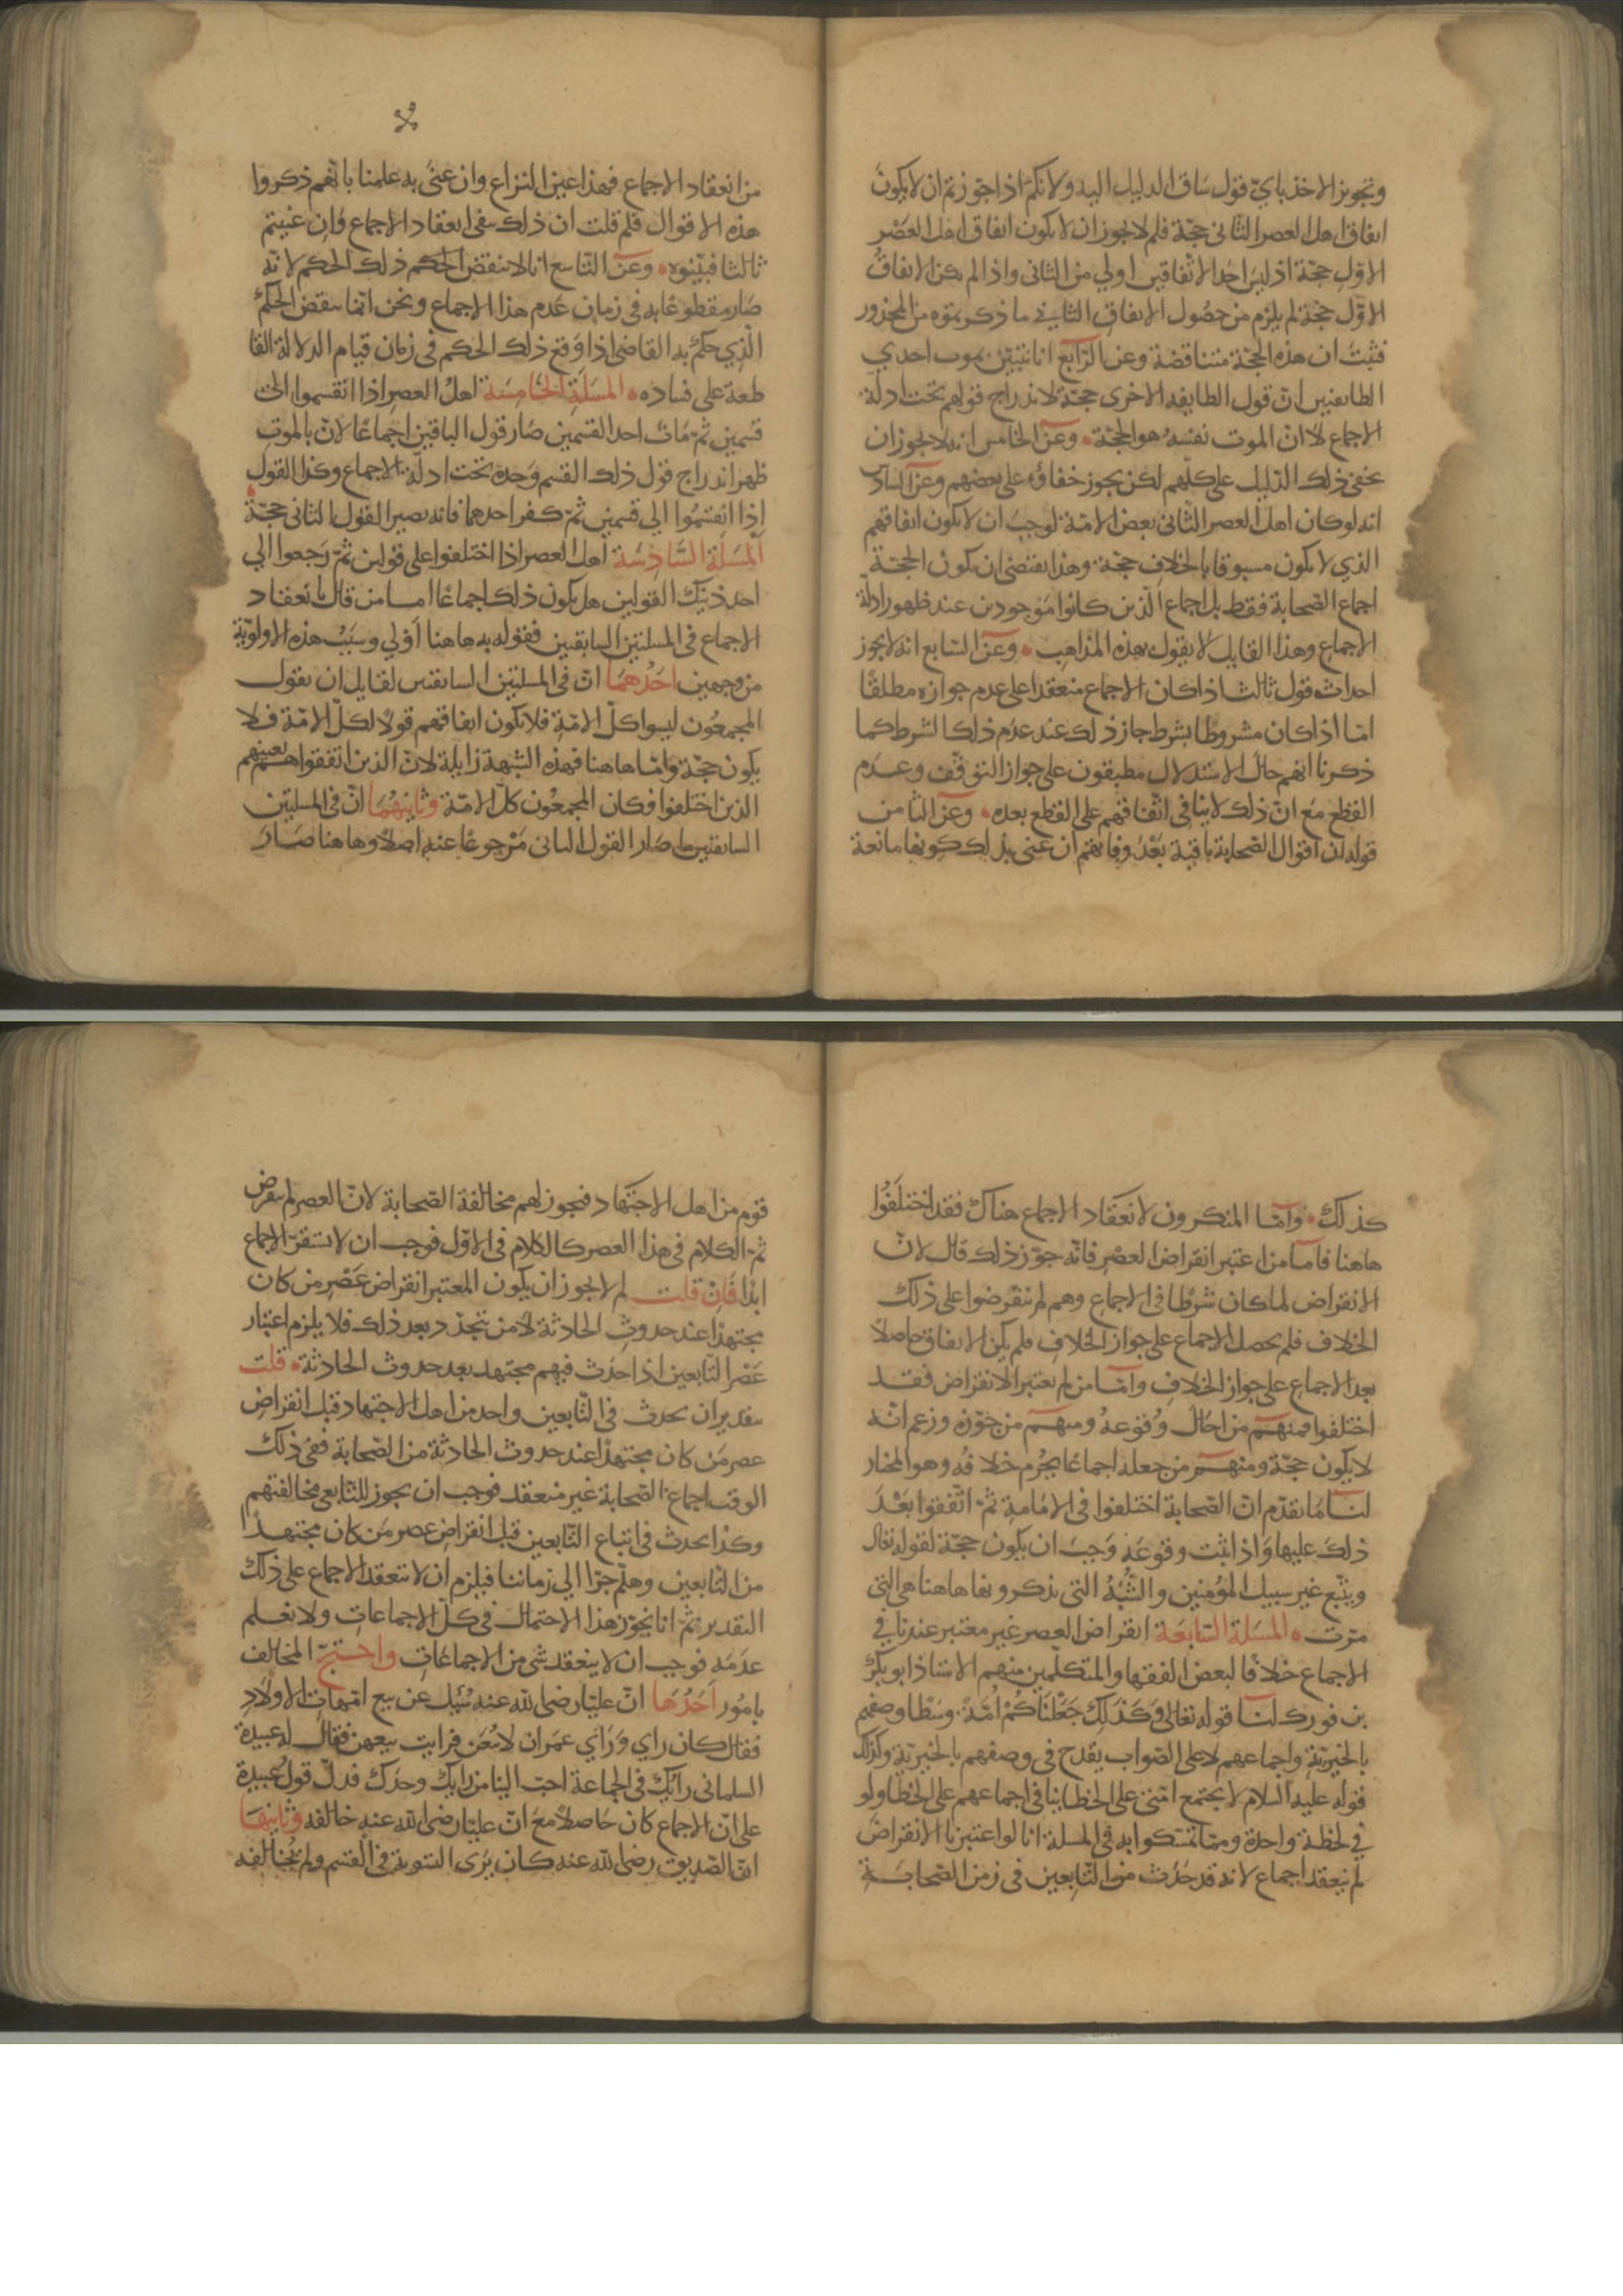 وتجويز الاخذ باىّ قول ساق الدليل اليه ولانكم اذا جوّزتم ان لا يكون
اتفاق اهل العصر الثانى حجّة فلم لا يجوز ان لا يكون اتفاق اهل العصر
الاوّل حجّة اذ ليس احد الاتّفاقين اولي من الثانى واذا لم يكن الاتفاق
الاوّل حجّة لم يلزم من حصُول الاتفاق الثاني ما ذكرتموه من المحذور
فثبت ان هذه الحجّة متناقضة وعن الرّابع انا نتبيّن بموت احدي
الطايفتين انّ قول الطايفه الاخرى حجّة لاندراج قولهم تحت ادلّة
الاجماع لا انّ الموت نفسه هو الحجّة وعن الخامس انه لا يجوز ان
يخفى ذلك الدّليل على كلّهم لكن يجوز خفاؤه على بعضهم وعن السادس
انه لو كان اهل العصر الثانى بعض الامّة لوجب ان لا يكون اتفاقهم
الذي لا يكون مسبوقا بالخلاف حجّة وهذا يقتضى ان يكون الحجّة
اجماع الصّحابة فقط بل اجماع الّذين كانوا موجودين عند ظهور ادلّة
الاجماع وهذا القايل لا يقول بهذه المذاهب وعن السّابع انه لا يجوز
احداث قول ثالث اذا كان الاجماع منعقدا على عدم جوازه مطلقًا
امّا اذا كان مشروطًا بشرط جاز ذلك عند عدم ذلك الشرط كما
ذكرنا انهم حال الاستدلال مطبقون على جواز التوقّف وعدم
القطع مع انّ ذلك لا ينافى اتّفاقهم على القطع بعده وعن الثامن
قوله ان اقوال الصّحابة باقية بعْد وفاتهم ان عنى بذلك كونها مانعة
من انعقاد الاجماع فهذا عين النزاع وان عنى به علمنا بانّهم ذكروا
هذه الاقوال فلم قلت ان ذلك ينفى انعقاد الاجماع وان عنيتم
ثالثا فبيّنوه وعن التّاسع انا لا ننقض الحكم ذلك الحكم لانّه
صار مقطوعًا به فى زمان عدم هذا الاجماع ونحن انّما ننقض الحكم
الّذي حكم به القاضى اذا وقع ذلك الحكم فى زمان قيام الدلالة القا
طعة على فساده المسَلة الخامسَة اهل العصر اذا انقسموا الى
قسمين ثمّ مات احد القسمين صار قول الباقين اجماعًا لانّ بالموت
ظهر اندراج قول ذلك القسم وحده تحت ادلّة الاجماع وكذا القول
اذا انقسمُوا الي قسمين ثمّ كفر احدهما فانه يصير القول الثانى حجّة
المسَلة السّادسَة اهل العصر اذا اختلفوا على قولين ثمّ رجعوا الي
احد ذينك القولين هل يكون ذلك اجماعًا امّا من قال بانعقاد
الاجماع فى المسلتين السابقين فقوله به هاهنا اولي وسبب هذه الاولويّة
من وجهين احدُهمَا انّ فى المسلتين السابقتين لقايل ان يقول
المجمعُون ليسوا كلّ الامّة فلا يكون اتفاقهم قولًا لكلّ الامّة فلا
يكون حجّة وامّا هاهنا فهذه الشّبهة زايلة لانّ الذين اتفقوا هم بعينهم
الذين اختلفوا فكان المجمعُون كلّ الامّة وثانيهمَا انّ فى المسلتين
السابقتين ما صار القول الثانى مرجوعًا عنه اصلًا وهاهنا صار
كذلك وامّا المنكرون لانعقاد الاجماع هناك فقد اختلفُوا
هاهنا فامّا من اعتبر انقراض العصْر فانّه جوّز ذلك قال لانّ
الانقراض لما كان شرطًا فى الاجماع وهم لم ينقرضوا على ذلك
الخلاف فلم يحصل الاجماع على جواز الخلاف فلم يكن الاتفاق حاصلًا
بعد الاجماع على جواز الخلاف وامّا من لم يعتبر الانقراض فقد
اختلفوا فمنهم من احال وقوعه ومنهم من جوّزه وزعم انّه
لا يكون حجّة ومنهم من جعله اجماعًا يحرم خلافه وهو المختار
لنا ما تقدّم انّ الصّحابة اختلفوا فى الامامة ثمّ اتّفقوا بعْد
ذلك عليها واذا ثبت وقوعه وجب ان يكون حجّة لقوله تعالى
ويتّبع غير سبيل المؤمنين والشُّبَهُ التى يذكرونها هاهنا هى التى
مرّت المسَلة السّابعَة انقراض العصر غير معتبر عندنا في
الاجماع خلافًا لبعض الفقها والمتكلّمين منهم الاستاذ ابو بكر
بن فورك لنا قوله تعالى وكَذلِكَ جَعَلْنَاكُمْ اُمَّةً وسَطًا وصفهم
بالخيريّة واجماعهم لا على الصّواب يقدح فى وصفهم بالخيريّة وكذلك
قوله عليه السلام لا يجتمع امّتى على الخطا ينافى اجماعهم على الخطا ولو
في لحظة واحدة وممّا تمسّكوا به فى المسلة انا لو اعتبرنا الانقراض
لم ينعقد اجماع لانه قد حَدث من التّابعين فى زمن الصّحابَة
قوم من اهل الاجتهاد فيجوز لهم مخالفة الصّحابة لانّ العصر لم ينقرض
ثمّ الكلام فى هذا العصر كالكلام فى الاوّل فوجب ان لا يستقرّ الاجماع
ابدًا فَاِنْ قلت لم لا يجوز ان يكون المعتبر انقراض عَصْر من كان
مجتهدًا عند حدوث الحادثة لا من يتجدّد بعد ذلك فلا يلزم اعتبار
عَصْر التّابعين اذا حدَث فيهم مجتهد بعد حدوث الحادثة قلت
بتقدير ان يحدث فى التّابعين واحد من اهل الاجتهاد قبل انقراض
عصر مَن كان مجتهدًا عند حدوث الحادثة من الصّحابة ففى ذلك
الوقت اجماع الصّحابة غير منعقد فوجب ان يجوز للتّابعى مخالفتهم
وكذا يحدث فى اتباع التّابعين قبل انقراض عصر من كان مجتهدًا
من التّابعين وهلّم جرّا الي زماننا فيلزم ان لا ينعقد الاجماع على ذلك
التقدير ثمّ انا نجوّز هذا الاحتمال فى كلّ الاجماعات ولا نعلم
عدمَه فوجب ان لا ينعقد شى من الاجماعات واحتجّ المخالف
بامُور اَحَدُهَا انّ عليّا رضى الله عنه سُئل عن بيع امّهات الاولاد
فقال كان راي ورَاي عمَر ان لا يُبَعن فرايت بيعهن فقال له عبيدة
السلمانى رايك فى الجماعة احبّ الينا من رايك وحدك فدلّ قول عَبيدة
على انّ الاجماع كان حاصلًا مع انّ عليّا رضى الله عنه خالفه وثانيهَا
انّ الصّديق رضى الله عنه كان يَرى التسوية فى القسم ولم يُخالفه